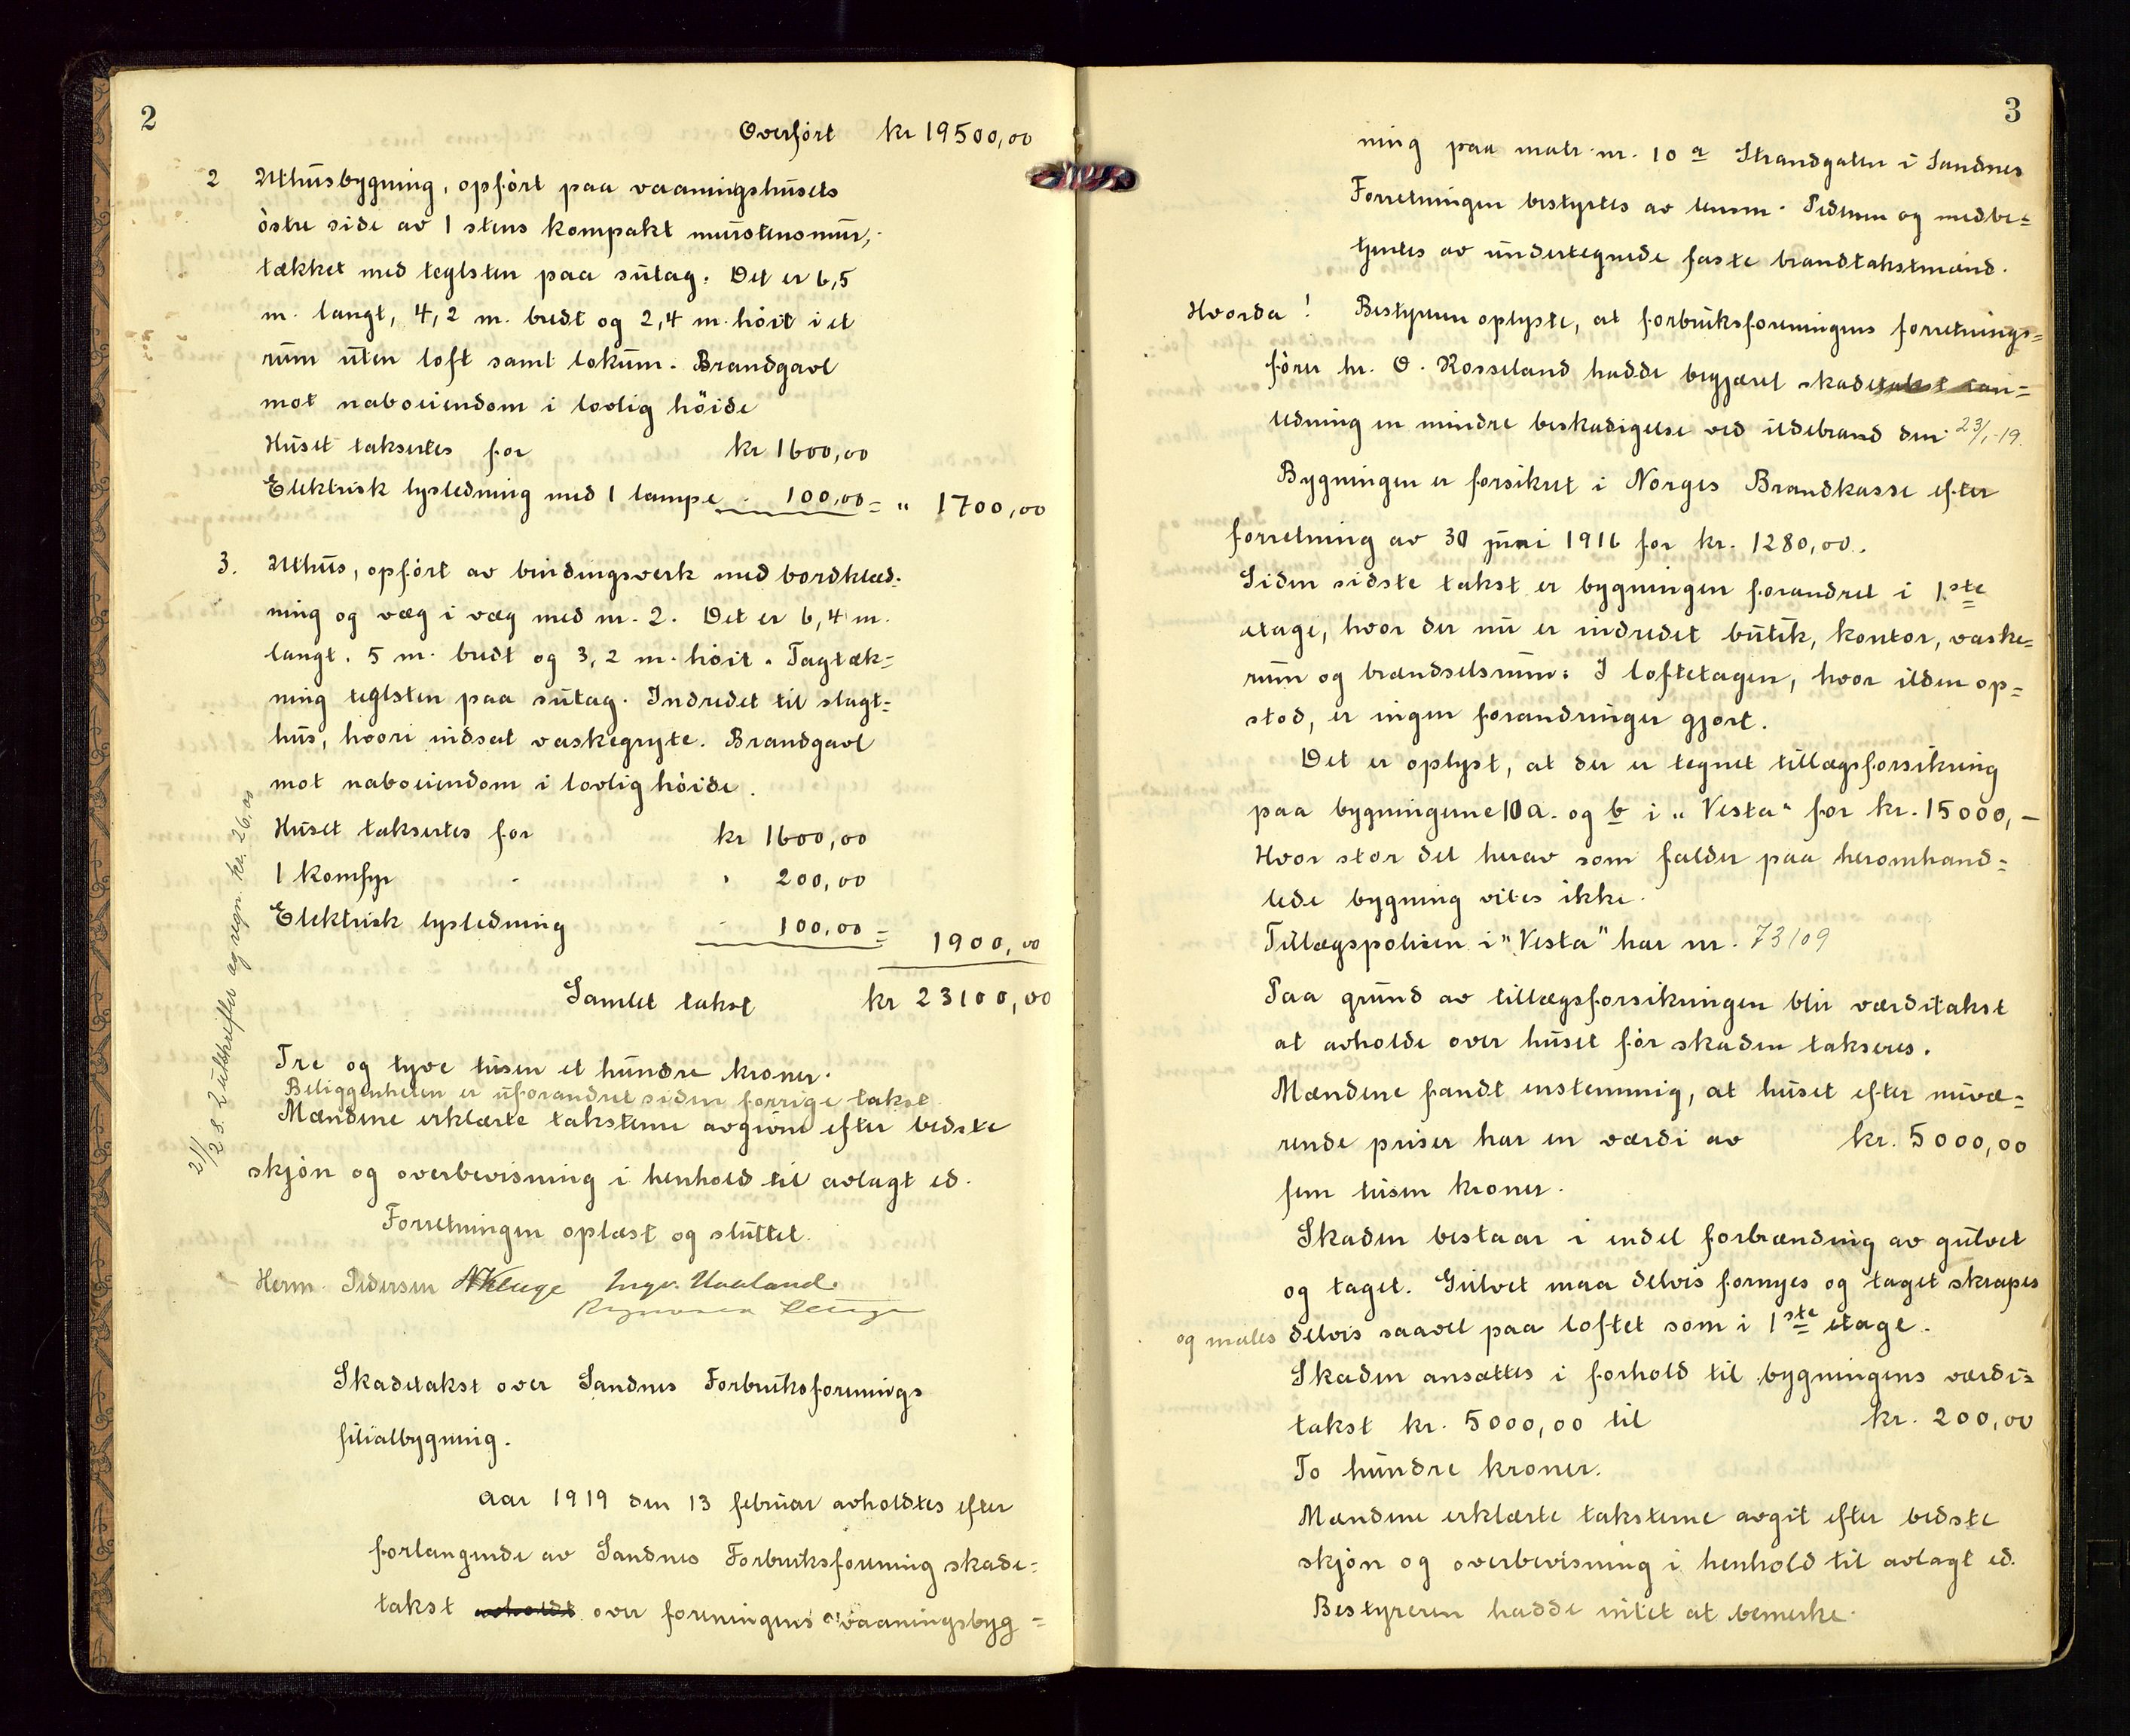 2
Overført kr 19500,00
2 Uthusbygning, opført paa vaaningshusets
østre side av 1 stens kompakt murstensmur,
tækket med teglsten paa sutag. Det er 6,5
m. langt, 4,2 m. bredt og 2,4 m. høit i et
rum uten loft samt lokum. Brandgavl
mot naboeiendom i lovlig høide
Huset taksertes for kr 1600,00
Elektrisk lysledning med 1 lampe - 100,00 = " 1700,00
3. Uthus, opført av bindingsverk med bordklæd-
ning og væg i væg med nr. 2. Det er 6,4 m.
langt. 5 m. bredt og 3,2 m. høit. Tagtæk=
ning teglsten paa sutag. Indredet til slagt=
hus, hvori indsat vaskegryte. Brandgavl
mot naboeiendom i lovlig høide.
Huset taksertes for kr 1600,00
1 komfyr - " 200,00
Elektrisk lysledning - 100,00 = 1900,00
Samlet takst kr 23100,00
Tre og tyve tusen et hundre kroner.
Beliggenheten er uforandret siden forrige takst
Mændene erklærte taksterne avgivne efter bedste
skjøn og overbevisning i henhold til avlagt ed.
Forretningen oplæst og sluttet.
Herm. Pedersen Kluge Ingv. Haaland.
2 utskrifter og regn kr. 26,00
Skadetakst over Sandnes Forbruksforenings
filialbygning.
Aar 1919 den 13 februar avholdtes efter
forlangende av Sandnes Forbruksforening skade=
takst avholdt over foreningens vaaningsbyg=
3
ning paa matr. nr. 10 a Strandgaten i Sandnes
Forretningen bestyrtes av lensm. Pedersen og medbe=
tjentes av undertegnede faste brandtakstmænd.
Hvorda! Bestyreren oplyste, at forbruksforeningens forretnings=
fører hr. O. Rosseland hadde begjæret skadetakst i an=
ledning en mindre beskadigelse ved ildebrand den 23/1-19.
Bygningen er forsikret i Norges Brandkasse efter
forretning av 30 juni 1916 for kr. 1280,00.
Siden sidste takst er bygningen forandret i 1.ste
etage, hvor der nu er indredet butik, kontor, vaske=
rum og brændselsrum. I loftetagen, hvor ilden op=
stod, er ingen forandringer gjort.
Det er oplyst, at der er tegnet tillægsforsikring
paa bygningerne 10 a. og b i "Vesta" for kr. 15000,-
Hvor stor del herav som falder paa heromhand=
lede bygning vites ikke.
Tillægspolisen i "Vesta" har nr. 73109
Paa grund av tillægsforsikringen blir værditakst
at avholde over huset før skaden takseres.
Mændene fandt enstemmig, at huset efter nuvæ=
rende priser har en værdi av kr. 5000,00
fem tusen kroner.
Skaden bestaar i endel forbrænding av gulvet
og taget. Gulvet maa delvis fornyes og taget skrapes
og males delvis saavel paa loftet som i 1ste etage.
Skaden ansættes i forhold til bygningens værdi=
takst kr. 5000,00 til kr. 200,00
To hundre kroner.
Mændene erklærte taksterne avgit efter bedste
skjøn og overbevisning i henhold til avlagt ed.
Bestyreren hadde intet at bemerke.